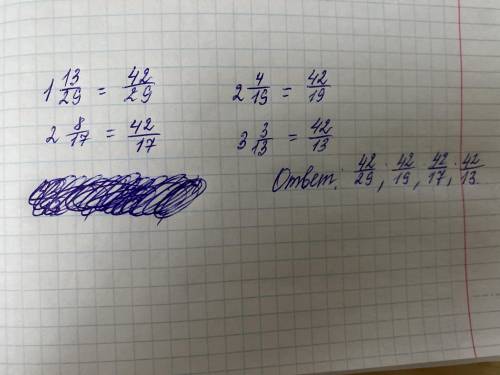 1 13/29 = 42/29 2 4/19 = 42/19
2 8/17 = 42/17 3 3/13 = 42/13
Ответ: 42/29; 42/19, 42/17, 42/13.